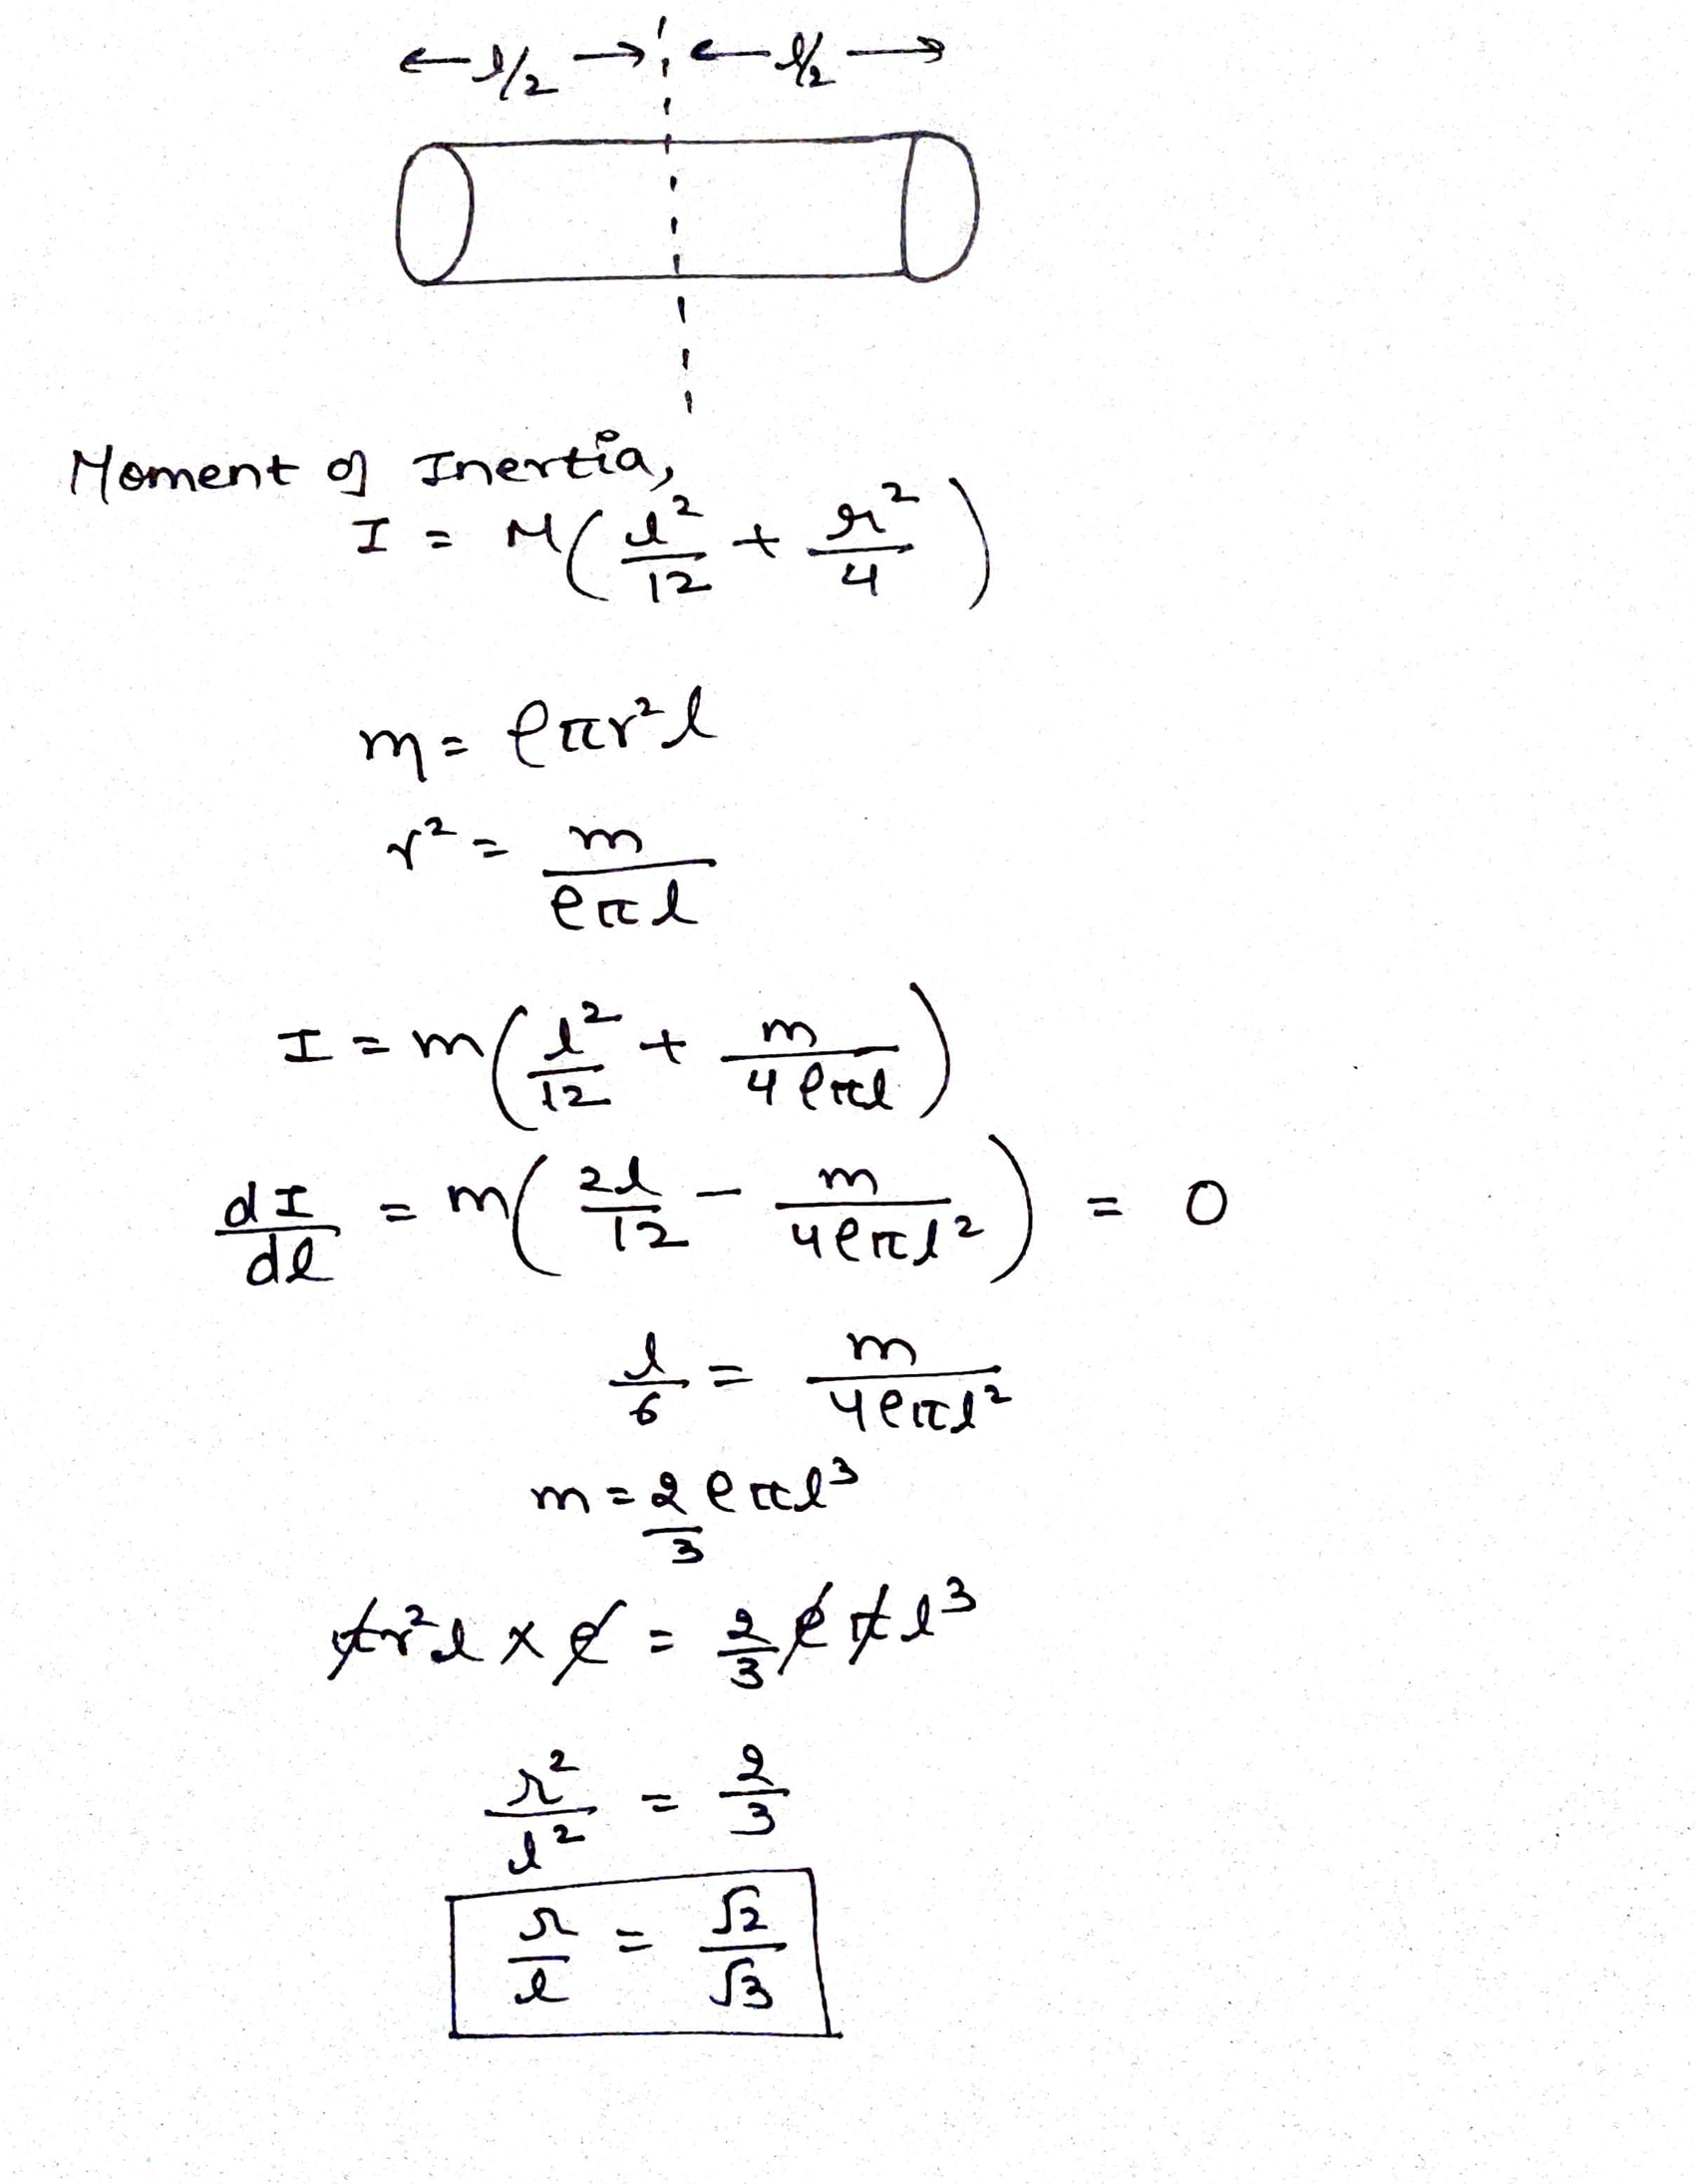 ← l/2 → ← l/2 →
Moment of Inertia,
I = M(l²/12 + r²/4)
m = ρπr²l
r² = m/ρπl
I = m(l²/12 + m/4ρπl)
dI/dl = m(2l/12 - m/4ρπl²) = 0
l/6 = m/4ρπl²
m = 2/3 ρπl³
πr²l × ρ = 2/3 ρπl³
r²/l² = 2/3
r/l = √2/√3